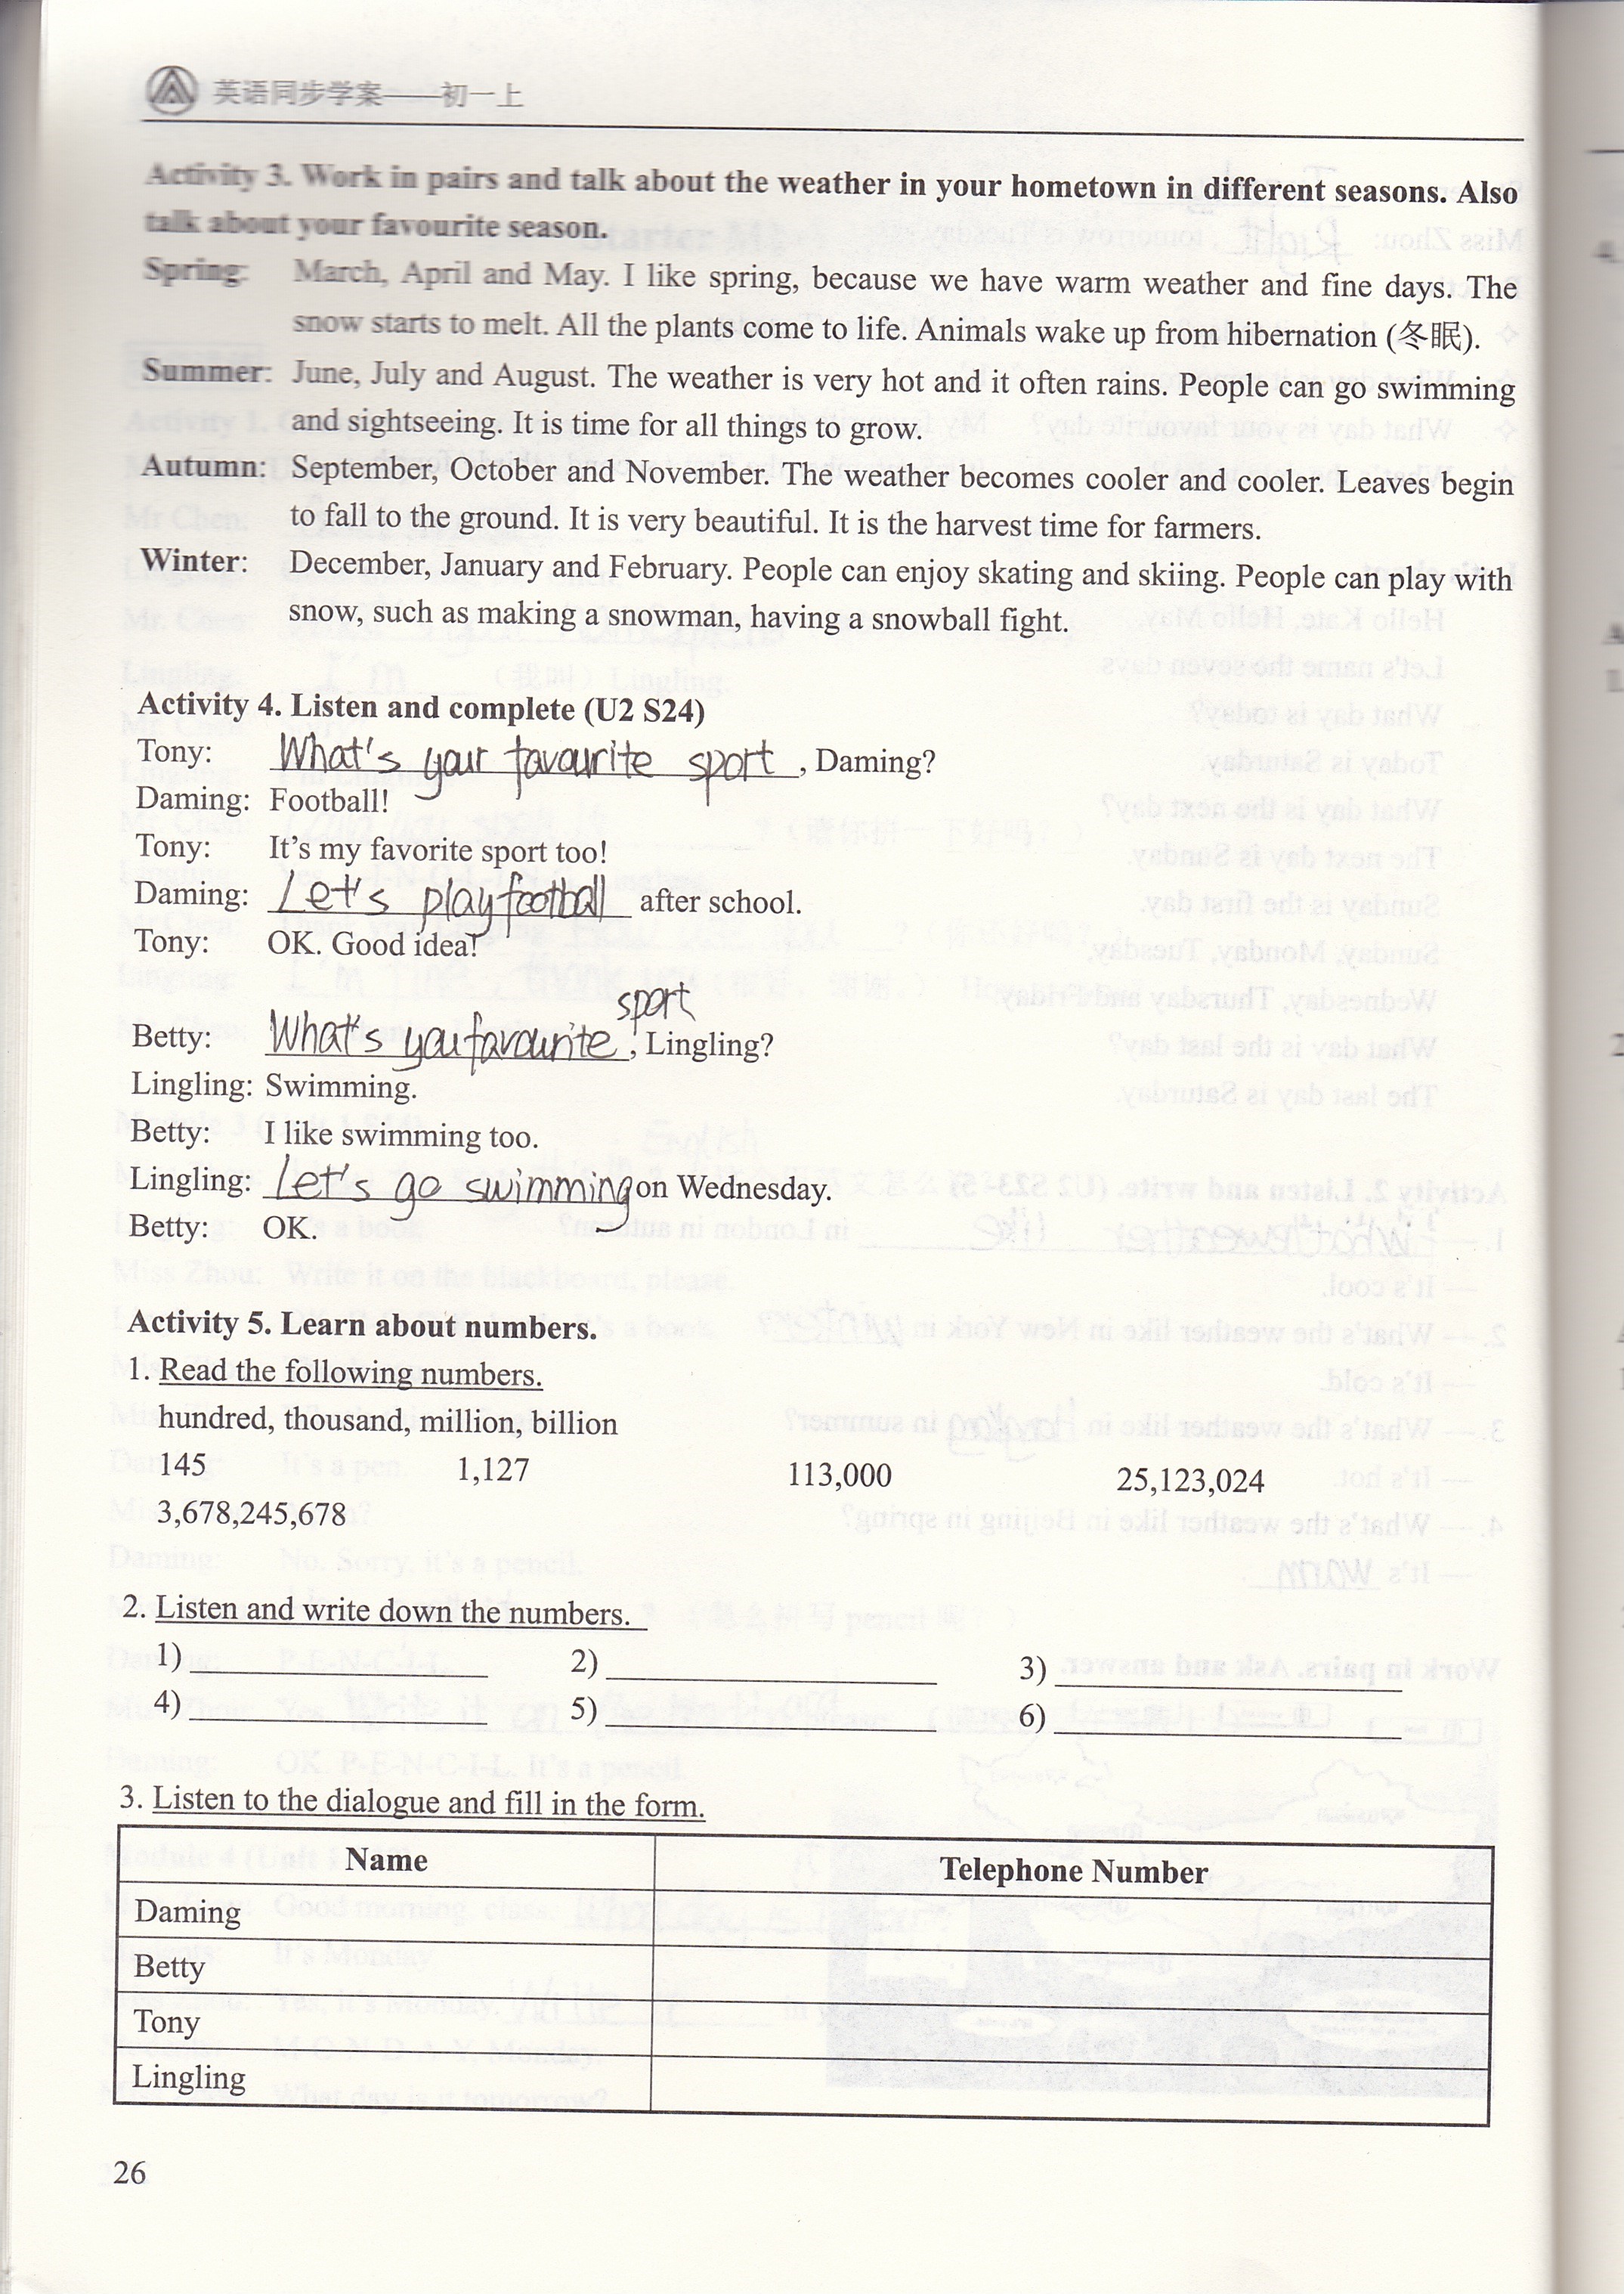 英语同步学案——初一上
Activity 3. Work in pairs and talk about the weather in your hometown in different seasons. Also
talk about your favourite season.
Spring: March, April and May. I like spring, because we have warm weather and fine days. The
snow starts to melt. All the plants come to life. Animals wake up from hibernation (冬眠).
Summer: June, July and August. The weather is very hot and it often rains. People can go swimming
and sightseeing. It is time for all things to grow.
Autumn: September, October and November. The weather becomes cooler and cooler. Leaves begin
to fall to the ground. It is very beautiful. It is the harvest time for farmers.
Winter: December, January and February. People can enjoy skating and skiing. People can play with
snow, such as making a snowman, having a snowball fight.
Activity 4. Listen and complete (U2 S24)
Tony: What's your favourite sport, Daming?
Daming: Football!
Tony: It's my favorite sport too!
Daming: Let's play football after school.
Tony: OK. Good idea!
sport
Betty: What's you favourite, Lingling?
Lingling: Swimming.
Betty: I like swimming too.
Lingling: Let's go swimming on Wednesday.
Betty: OK.
Activity 5. Learn about numbers.
1. Read the following numbers.
hundred, thousand, million, billion
145 1,127 113,000 25,123,024
3,678,245,678
2. Listen and write down the numbers.
1) 2) 3)
4) 5) 6)
3. Listen to the dialogue and fill in the form.
Name Telephone Number
Daming
Betty
Tony
Lingling
26